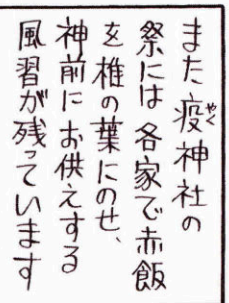 また疫神社の
やく
祭には各家で赤飯
を椎の葉にのせ、
神前にお供えする
風習が残っています